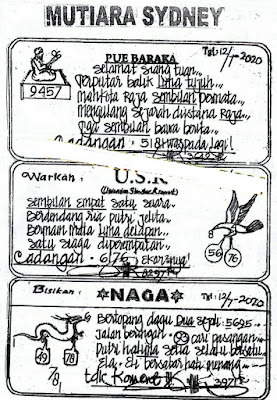 MUTIARA SYDNEY
PUE BARAKA
Tgl: 12/1-2020
96
9457
Selamat siang tuan...
Terputar balik lima tujuh...
Mahkota Raja sembilan permata...
Mengulang sejarah diistana Raja...
Tiga sembilan bawa berita...
Cadangan: 5181 waspada lagi!
Warkah:
U.S.K
sembilan empat satu suara..
Berdendang ria putri jelita..
Bermain mata lima delapan...
satu siaga diperempatan..
Cadangan: 6176 Ekornya!
3297
56 76
Bisikan:
NAGA
Tgl: 12/1-2020
Bertopang dagu Dua sept: 5695...
Jalan beringan 93 cari pasangan...
Putri hatiku setia selalu bersatu
bersatu hati menang...
tdk Koment
397
49 78